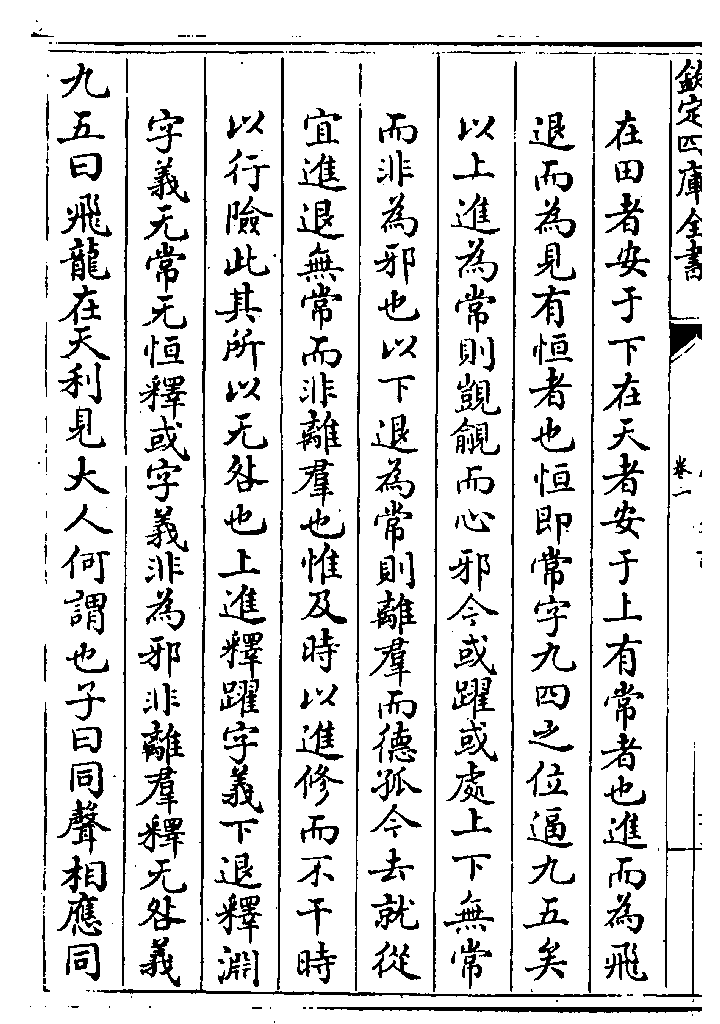 欽定四庫全書
卷一
在田者安于下在天者安于上有常者也進而為飛
退而為見有恒者也恒即常字九四之位逼九五矣
以上進為常則覬覦而心邪今或躍或處上下無常
而非為邪也以下退為常則離羣而德孤今去就從
宜進退無常而非離羣也惟及時以進修而不干時
以行險此其所以无咎也上進釋躍字義下退釋淵
字義无常无恒釋或字義非為邪非離羣釋无咎義
九五曰飛龍在天利見大人何謂也子曰同聲相應同